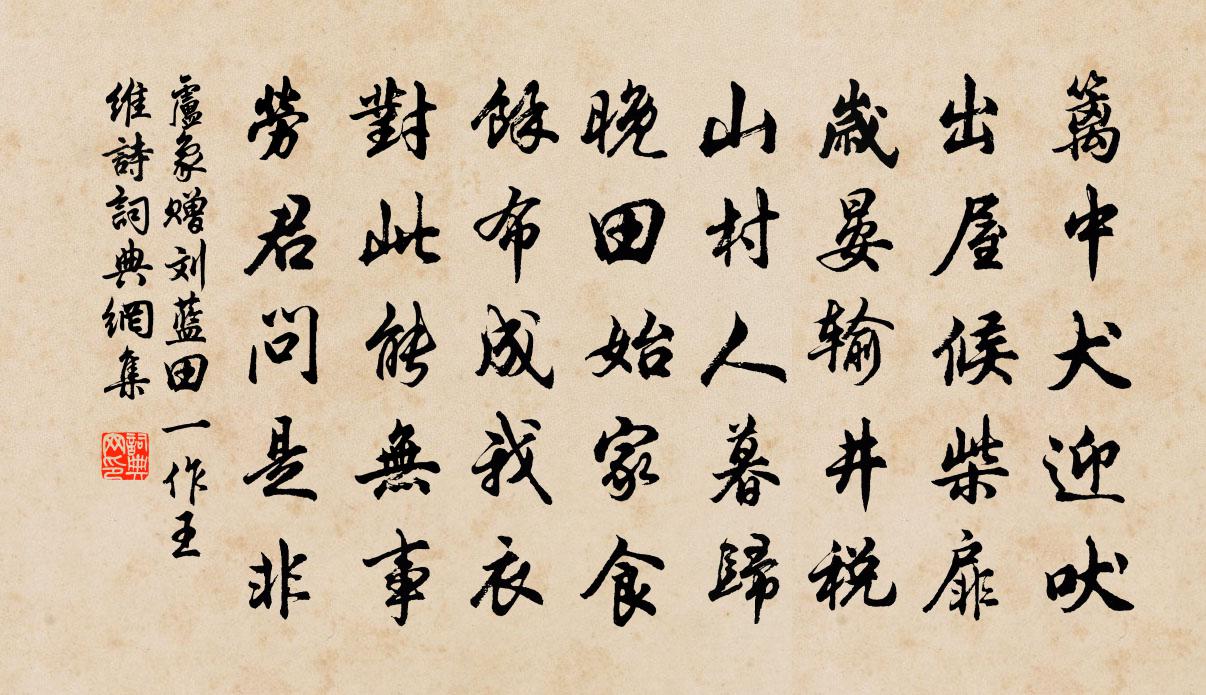 篱中犬迎吠
出屋候柴扉
歲晏輸井税
山村人暮歸
晚田始家食
餘布成我衣
對此能無事
勞君問是非
盧象贈刘藍田一作王
維詩詞典網集
詞典網印